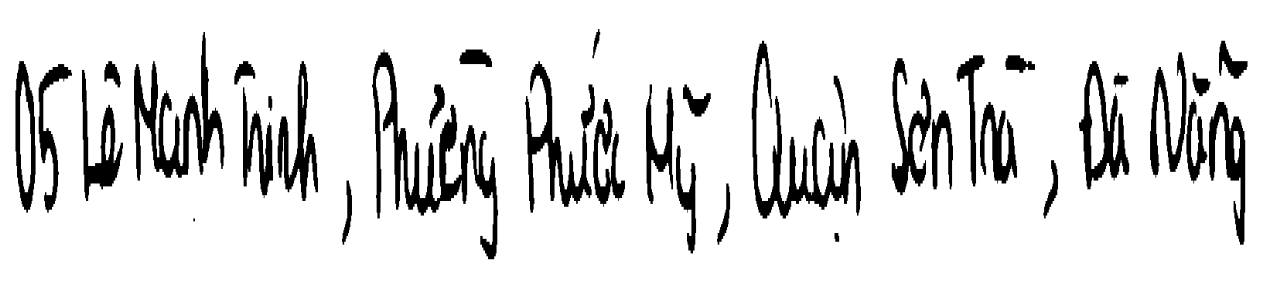 05 Lê Mạnh Trinh, Phường Phước Mỹ, Quận Sơn Trà, Đà Nẵng